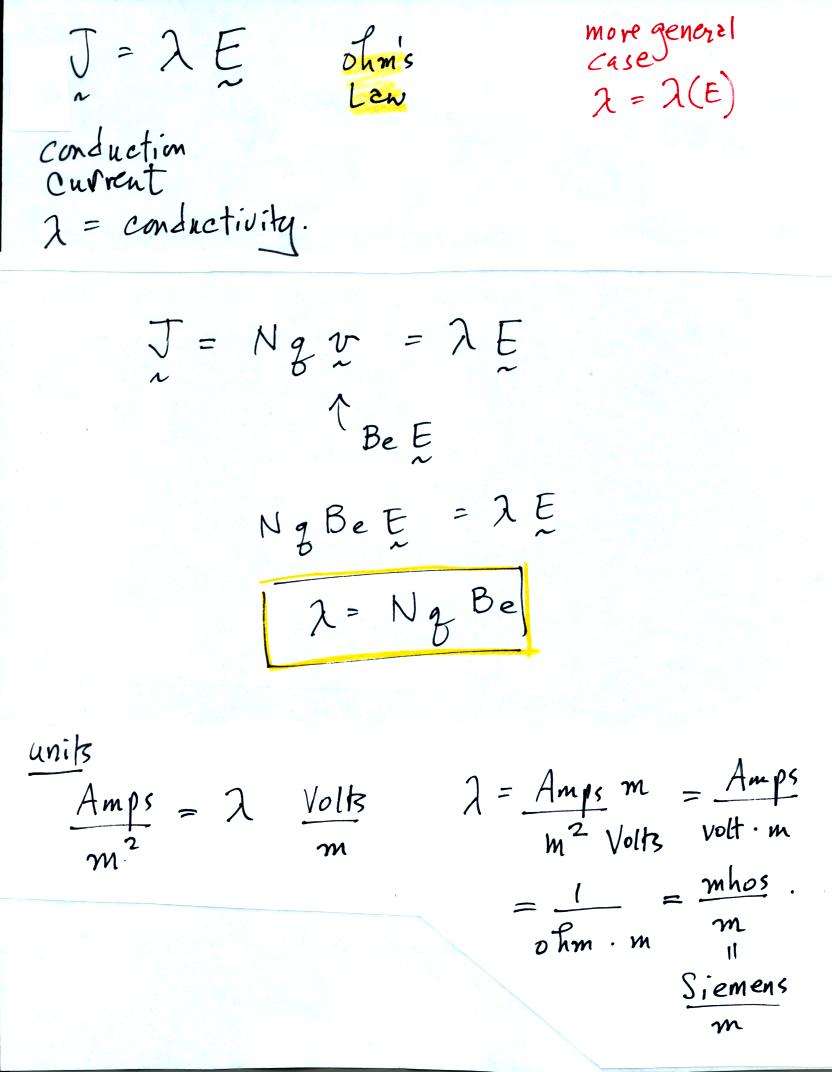 J = λ E
ohm's
Law
more general
case
λ = λ(E)
conduction
current
λ = conductivity.
J = N q v = λ E
↑
Be E
N q Be E = λ E
λ = N q Be
units
Amps/m² = λ Volts/m
λ = Amps m/m² Volts = Amps/volt · m
= 1/ohm · m = mhos/m .
=
Siemens/m